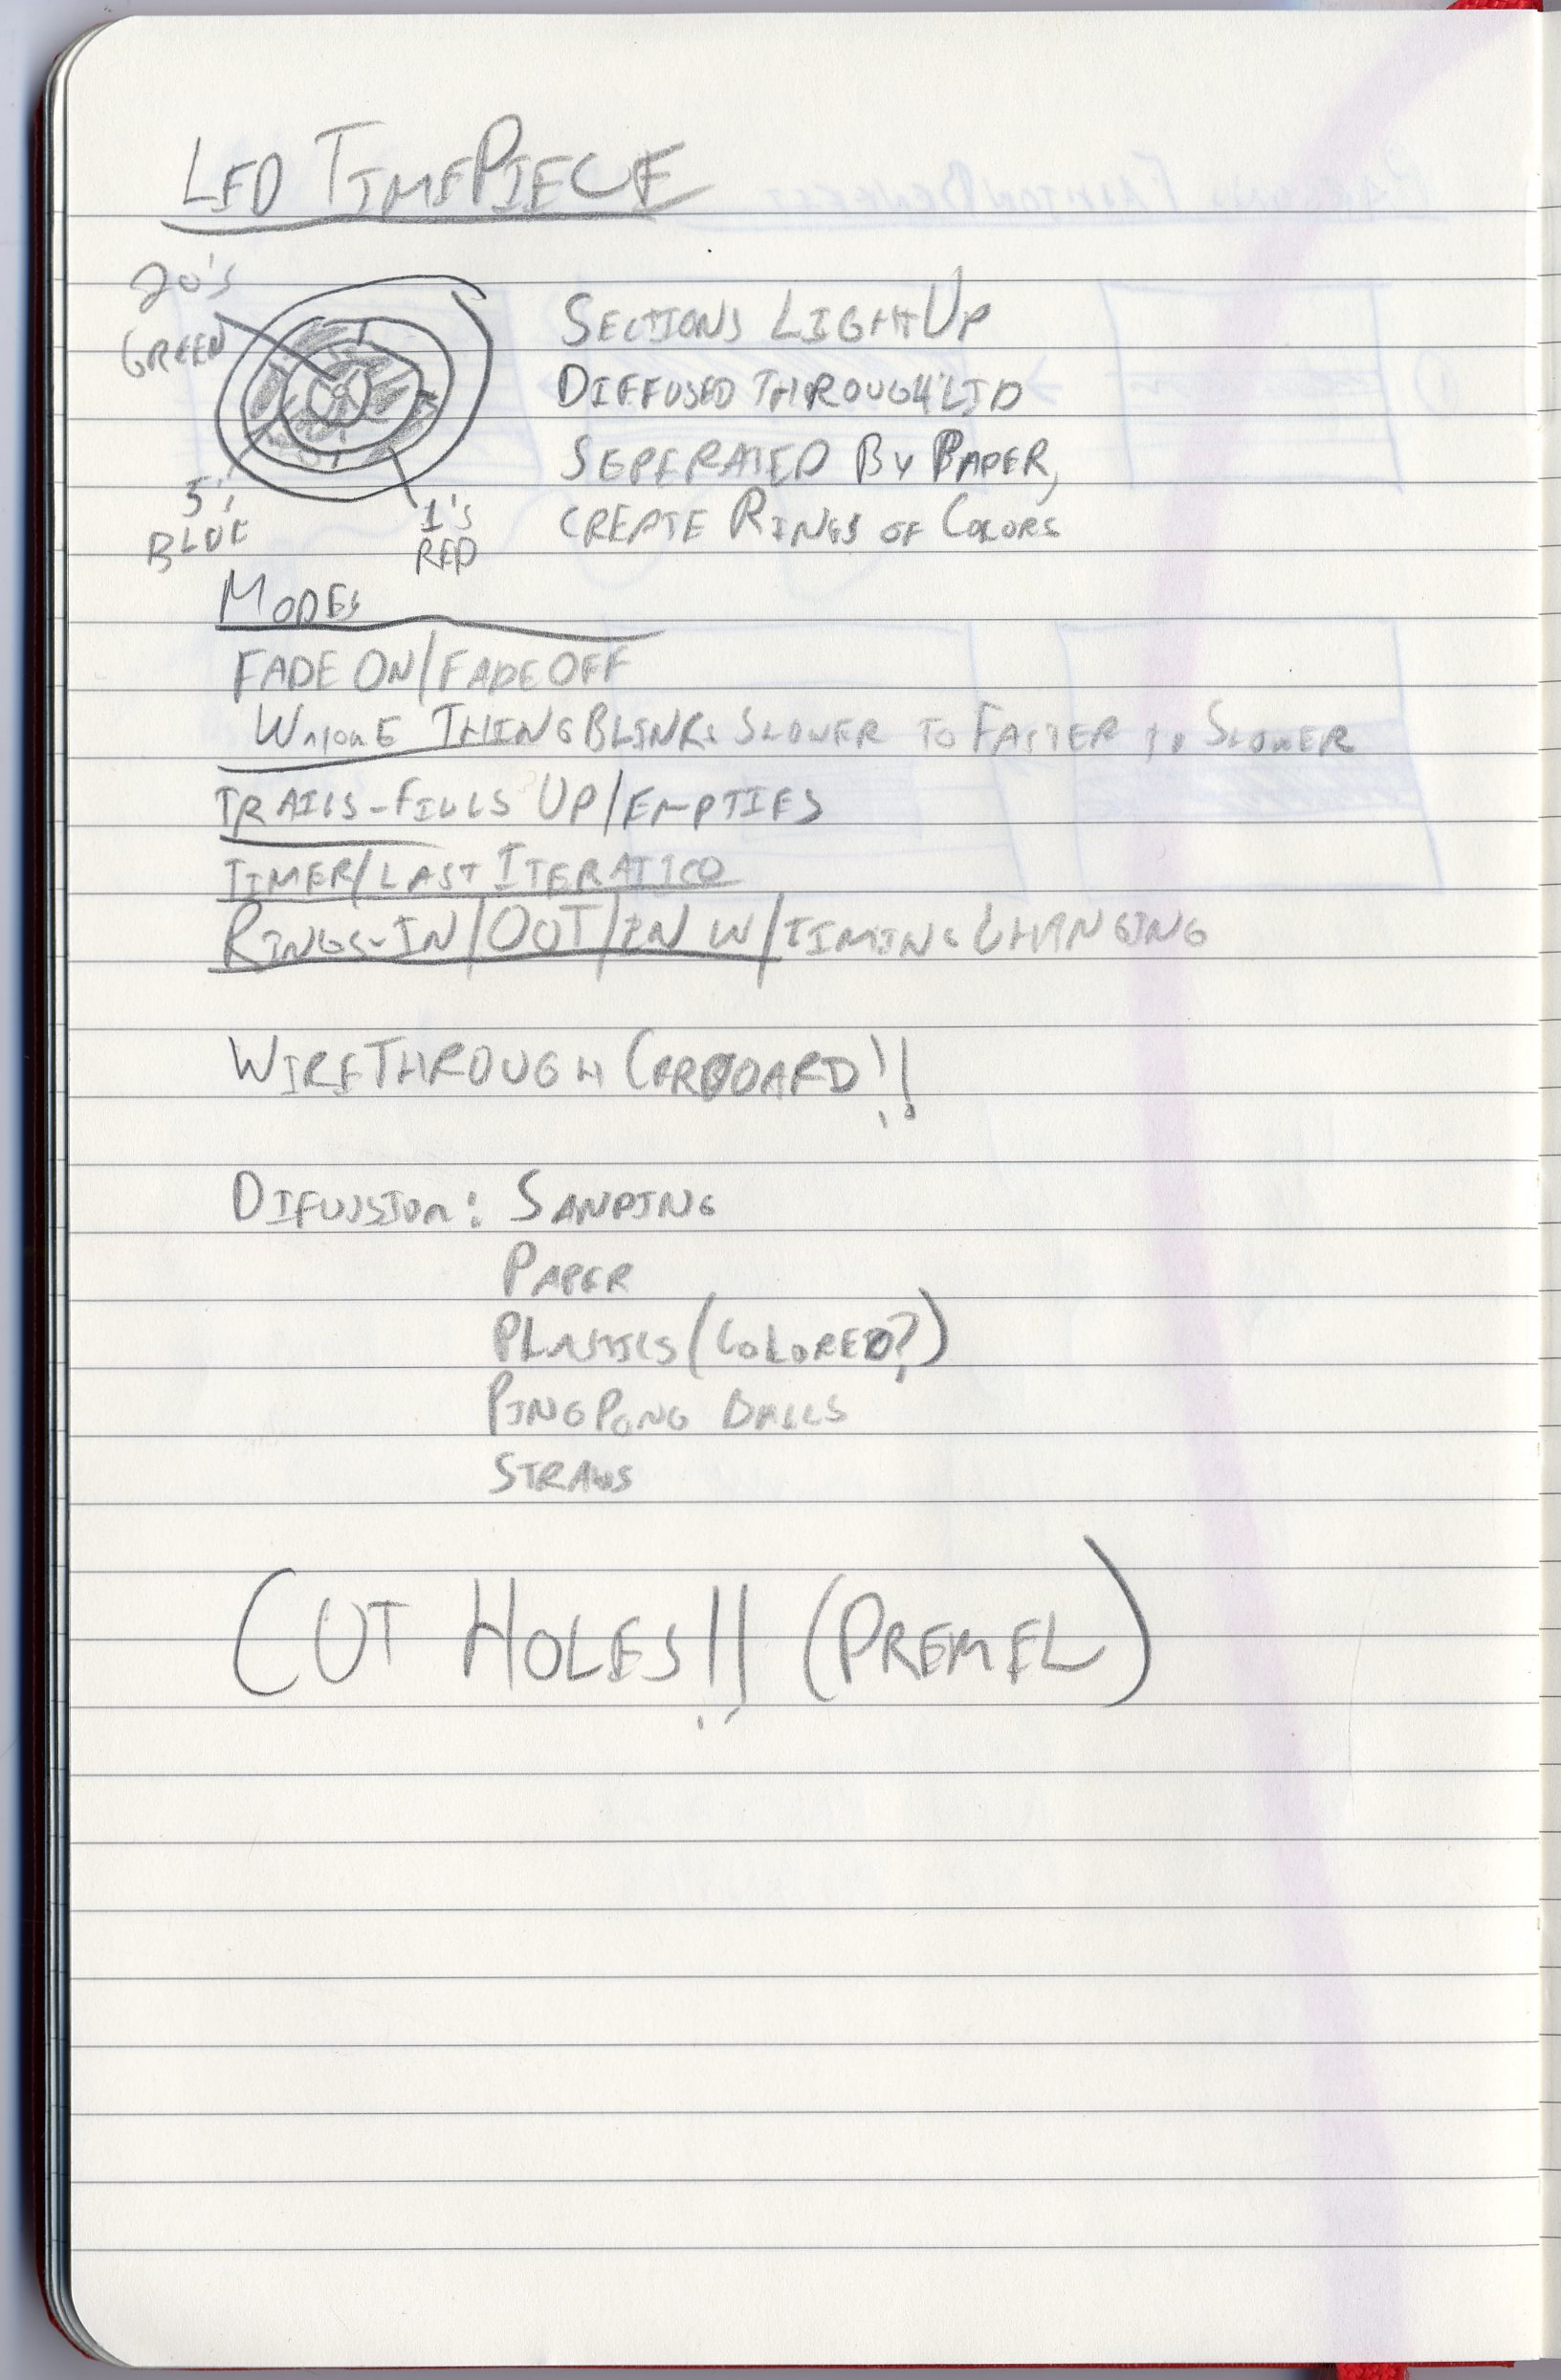 LED TIMEPIECE
20's
GREEN
5's
BLUE
1's
RED
SECTIONS LIGHT UP
DIFFUSED THROUGH LID
SEPERATED BY PAPER,
CREATE RINGS OF COLORS
MODES
FADE ON/FADE OFF
WHOLE THING BLINKS SLOWER TO FASTER TO SLOWER
TRAILS-FILLS UP/EMPTIES
TIMER/LAST
RINGS-IN/OUT/IN W/TIMING CHANGING
WIRE THROUGH CARBOARD!!
DIFUSSION: SANDING
PAPER
PLASTICS (COLORED?)
PING PONG BALLS
STRAWS
CUT HOLES!! (DREMEL)